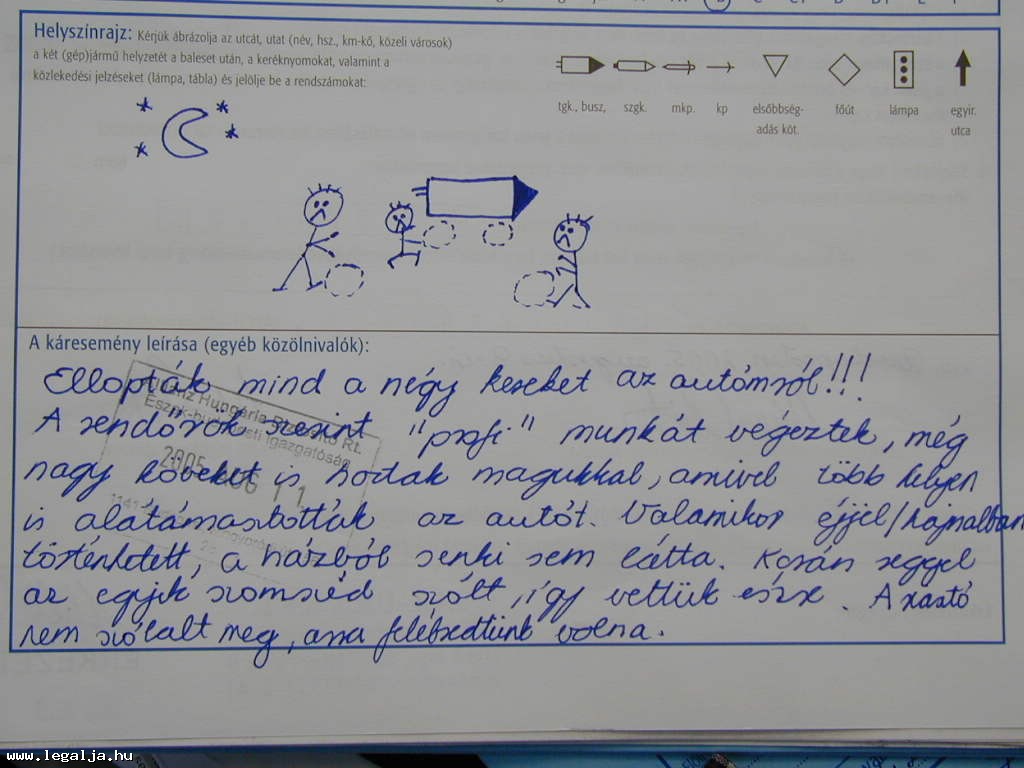 Helyszínrajz: Kérjük ábrázolja az utcát, utat (név, hsz., km-kő, közeli városok)
a két (gép)jármű helyzetét a baleset után, a keréknyomokat, valamint a
közlekedési jelzéseket (lámpa, tábla) és jelölje be a rendszámokat:
tgk., busz, szgk. mkp. kp elsőbbség- főút lámpa egyir.
adás köt. utca
A káresemény leírása (egyéb közölnivalók):
Ellopták mind a négy kereket az autómról!!!
Allianz Hungária Biztosító Rt.
Észak-budapesti igazgatóság
2005 AUG 11
A rendőrök szerint "profi" munkát végeztek, még
nagy köveket is hoztak magukkal, amivel több helyen
is alátámasztották az autót. Valamikor éjjel/hajnalban
történhetett, a házból senki sem látta. Korán reggel
az egyik szomszéd szólt, így vettük észre. A riasztó
nem szólalt meg, arra felébredtünk volna.
www.legalja.hu